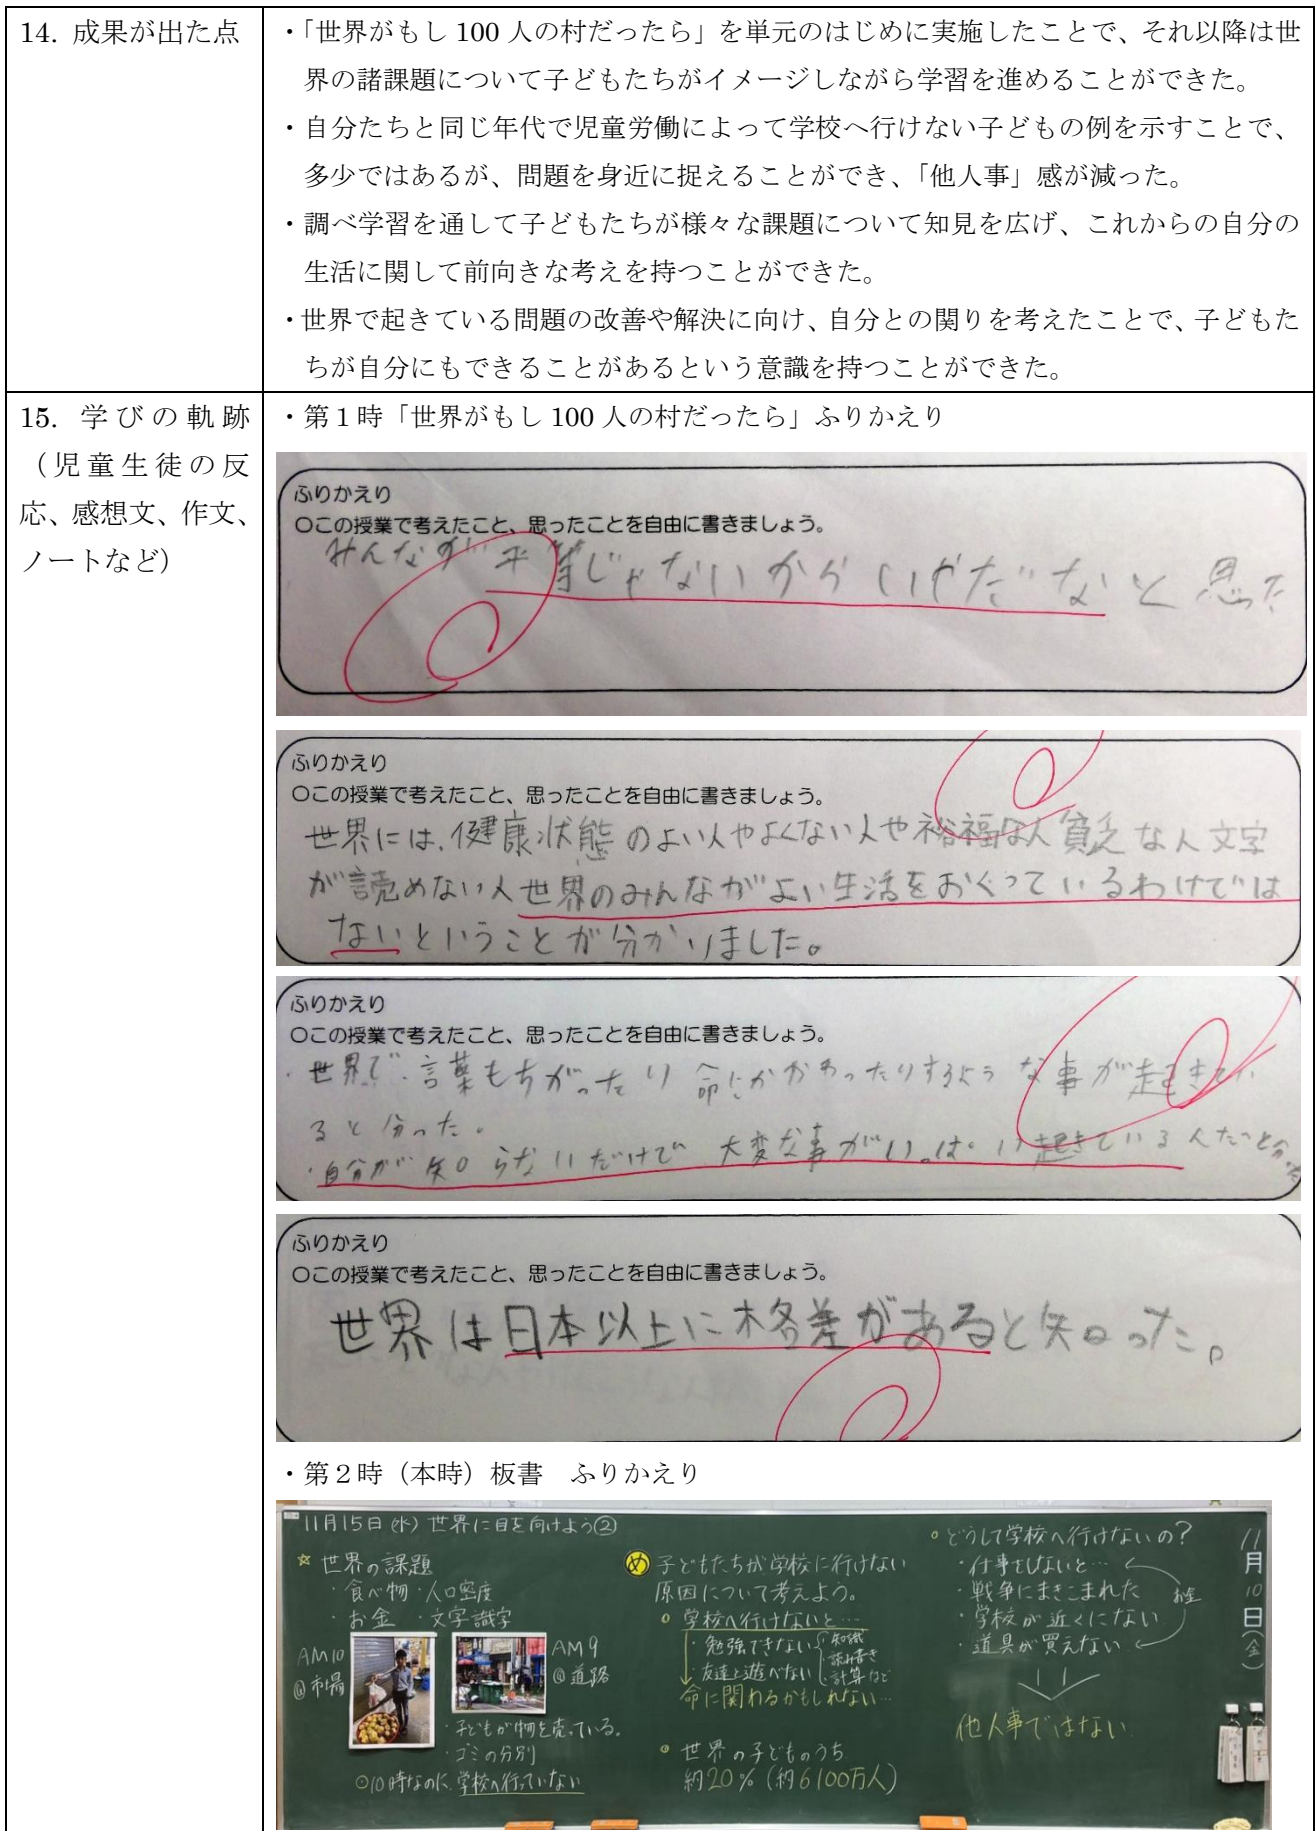 14. 成果が出た点
・「世界がもし 100 人の村だったら」を単元のはじめに実施したことで、それ以降は世
界の諸課題について子どもたちがイメージしながら学習を進めることができた。
・自分たちと同じ年代で児童労働によって学校へ行けない子どもの例を示すことで、
多少ではあるが、問題を身近に捉えることができ、「他人事」感が減った。
・調べ学習を通して子どもたちが様々な課題について知見を広げ、これからの自分の
生活に関して前向きな考えを持つことができた。
・世界で起きている問題の改善や解決に向け、自分との関りを考えたことで、子どもた
ちが自分にもできることがあるという意識を持つことができた。
15. 学びの軌跡
（児童生徒の反
応、感想文、作文、
ノートなど）
・第１時「世界がもし 100 人の村だったら」ふりかえり
ふりかえり
○この授業で考えたこと、思ったことを自由に書きましょう。
みんなが平等じゃないからいやだなと思った
ふりかえり
○この授業で考えたこと、思ったことを自由に書きましょう。
世界には、健康状態のよい人やよくない人や裕福な人貧乏な人文字
が読めない人世界のみんながよい生活をおくっているわけでは
ないということが分かりました。
ふりかえり
○この授業で考えたこと、思ったことを自由に書きましょう。
・世界で言葉もちがったり命にかかわったりするような事が起きてい
ると分った。
・自分が知らないだけで大変な事がいっぱい起きているんだと分った
ふりかえり
○この授業で考えたこと、思ったことを自由に書きましょう。
世界は日本以上に格差があると知った。
・第２時（本時）板書　ふりかえり
11月15日(水) 世界に目を向けよう②
☆ 世界の課題
・食べ物・人口密度
・お金　・文字 識字
AM10
@市場
AM9
@道路
・子どもが物を売っている。
・ゴミの分別
○10時なのに、学校へ行っていない
め 子どもたちが学校に行けない
原因について考えよう。
学校へ行けないと…
・勉強できない
・知識
・読み書き
・計算など
・友達と遊べない
命に関わるかもしれない…
世界の子どものうち
約20%（約6100万人）
どうして学校へ行けないの？
・仕事をしないと…
・戦争にまきこまれた
・学校が近くにない
・道具が買えない
お金
他人事ではない
11
月
10
日
(金)